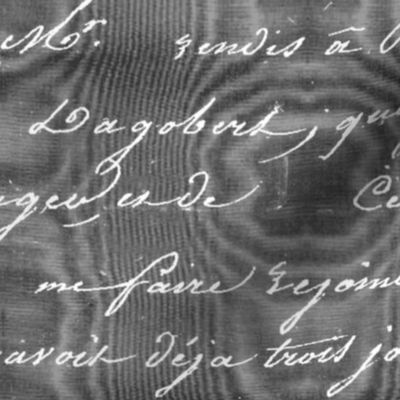 Mr. rendis à
Dagobert, que
et de Ce
me faire rejoin
avoit déja trois jo